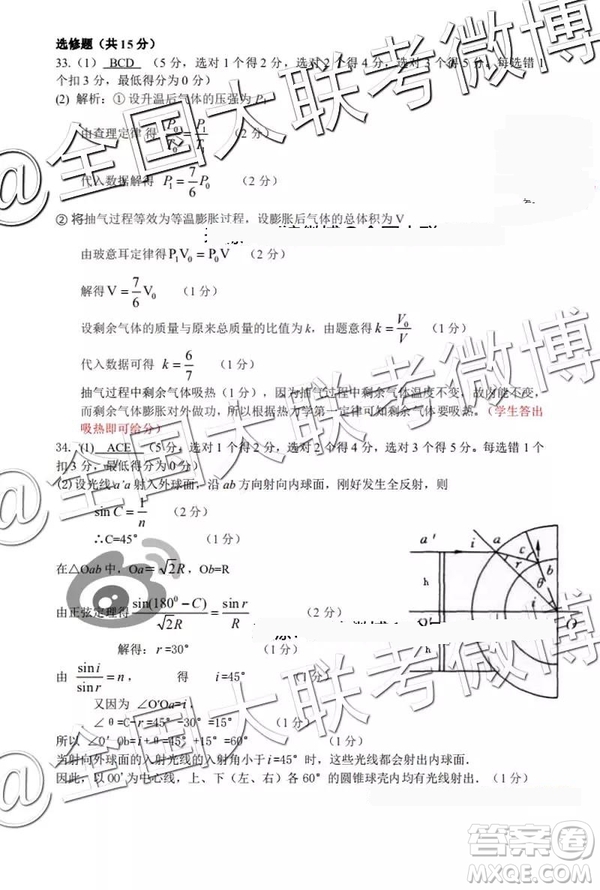 选修题（共 15 分）
33.（1） BCD （5 分，选对 1 个得 2 分，选对 2 个得 4 分，选对 3 个得 5 分，每选错 1
个扣 3 分，最低得分为 0 分）
(2) 解析：① 设升温后气体的压强为 P₁
由查理定律得 P₀/T₀ = P₁/T₁ （2 分）
代入数据解得 P₁ = 7/6 P₀ （2 分）
② 将抽气过程等效为等温膨胀过程，设膨胀后气体的总体积为 V
由玻意耳定律得 P₁V₀ = P₀V （2 分）
解得 V = 7/6 V₀ （1 分）
设剩余气体的质量与原来总质量的比值为 k，由题意得 k = V₀/V （1 分）
代入数据可得 k = 6/7 （1 分）
抽气过程中剩余气体吸热（1 分），因为抽气过程中剩余气体温度不变，故内能不变，
而剩余气体膨胀对外做功，所以根据热力学第一定律可知剩余气体要吸热。（学生答出
吸热即可给分）
34.（1） ACE （5 分，选对 1 个得 2 分，选对 2 个得 4 分，选对 3 个得 5 分。每选错 1 个
扣 3 分，最低得分为 0 分）
(2) 设光线 a'a 射入外球面，沿 ab 方向射向内球面，刚好发生全反射，则
sin C = 1/n （2 分）
∴C=45° （1 分）
在△Oab 中，Oa=√2R，Ob=R
由正弦定理得 sin(180⁰ − C)/√2R = sin r/R （2 分）
解得：r =30° （1 分）
由 sin i/sin r = n， 得 i=45° （1 分）
又因为 ∠O'Oa=i，
∠θ=C-r=45° -30° =15° （1 分）
所以 ∠O' Ob=i+∠θ=45° +15° =60° （1 分）
当射向外球面的入射光线的入射角小于 i =45° 时，这些光线都会射出内球面．
因此，以 OO'为中心线，上、下（左、右）各 60° 的圆锥球壳内均有光线射出．（1 分）
a' i a
C r b
h θ
i
O' O
h
@全国大联考微博
@全国大联考微博
答案圈
MXQE.COM